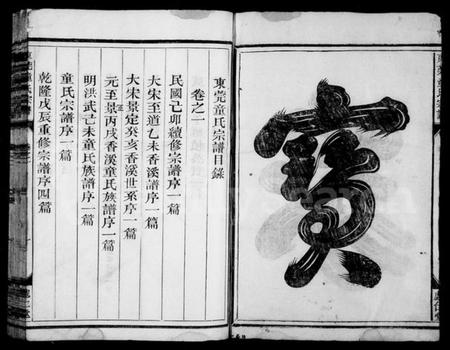 寶
東莞童氏宗譜目錄
卷之一
民國己卯續修宗譜序一篇
大宋至道乙未香溪譜序一篇
大宋景定癸亥香溪世系序一篇
元至正景丙戌香溪童氏族譜序一篇
明洪武己未童氏族譜序一篇
童氏宗譜序一篇
乾隆戊辰重修宗譜序四篇